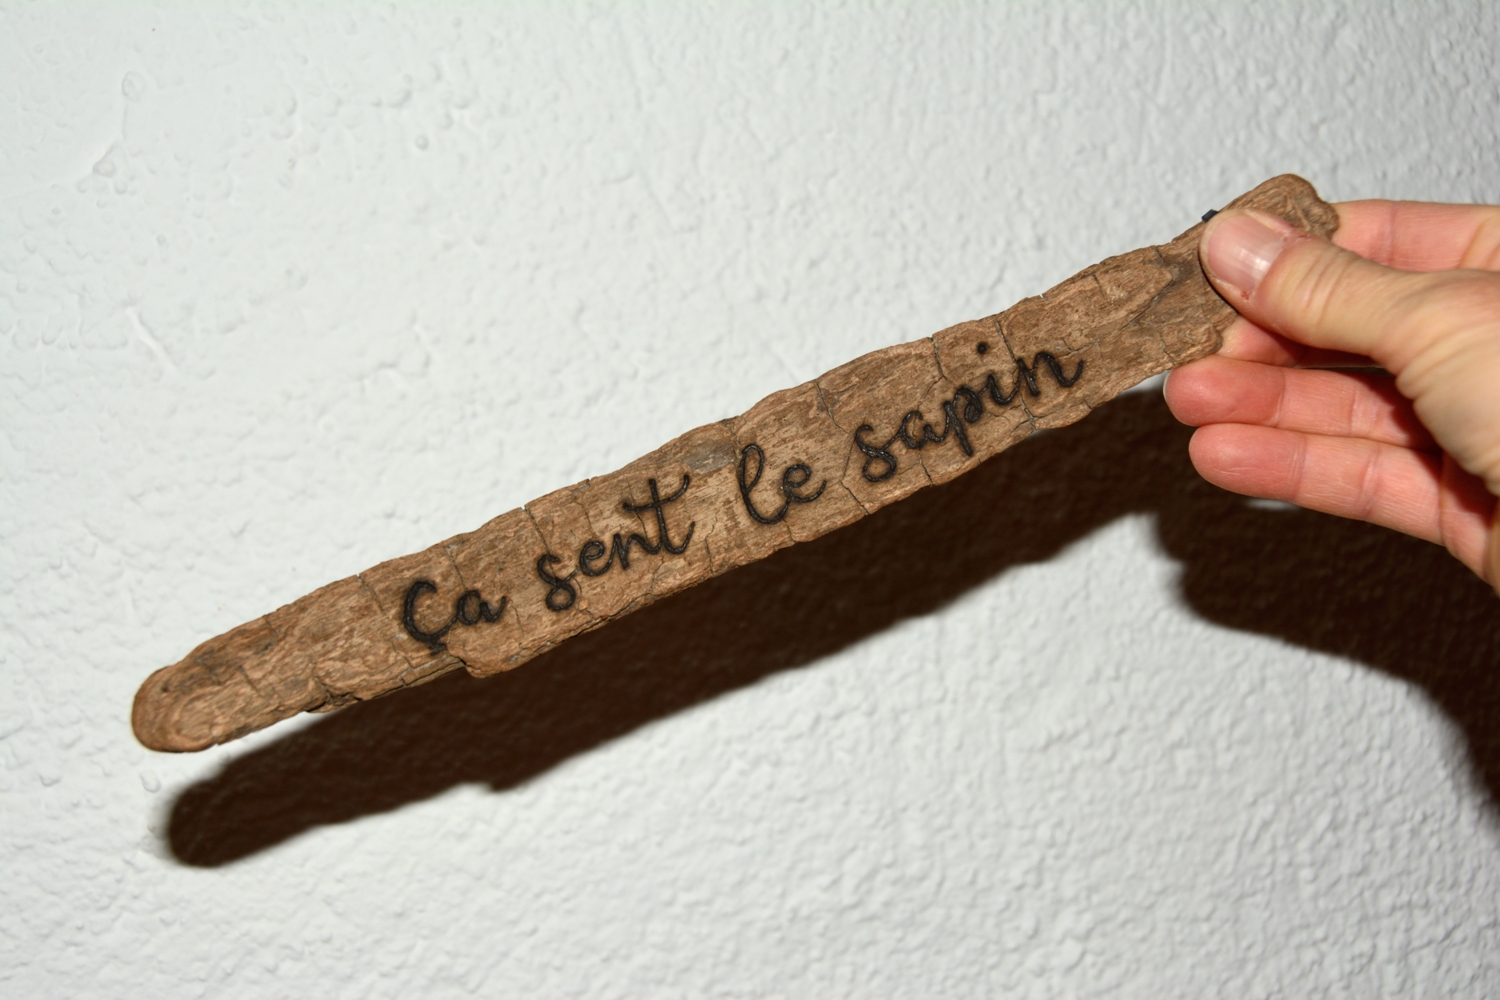 Ça sent le sapin